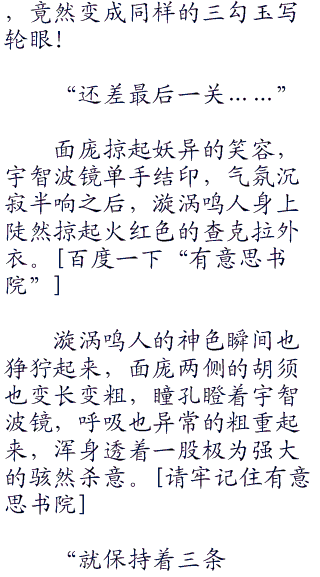 ，竟然变成同样的三勾玉写
轮眼！
“还差最后一关……”
面庞掠起妖异的笑容，
宇智波镜单手结印，气氛沉
寂半响之后，漩涡鸣人身上
陡然掠起火红色的查克拉外
衣。[百度一下“有意思书
院”]
漩涡鸣人的神色瞬间也
狰狞起来，面庞两侧的胡须
也变长变粗，瞳孔瞪着宇智
波镜，呼吸也异常的粗重起
来，浑身透着一股极为强大
的骇然杀意。[请牢记住有意
思书院]
“就保持着三条